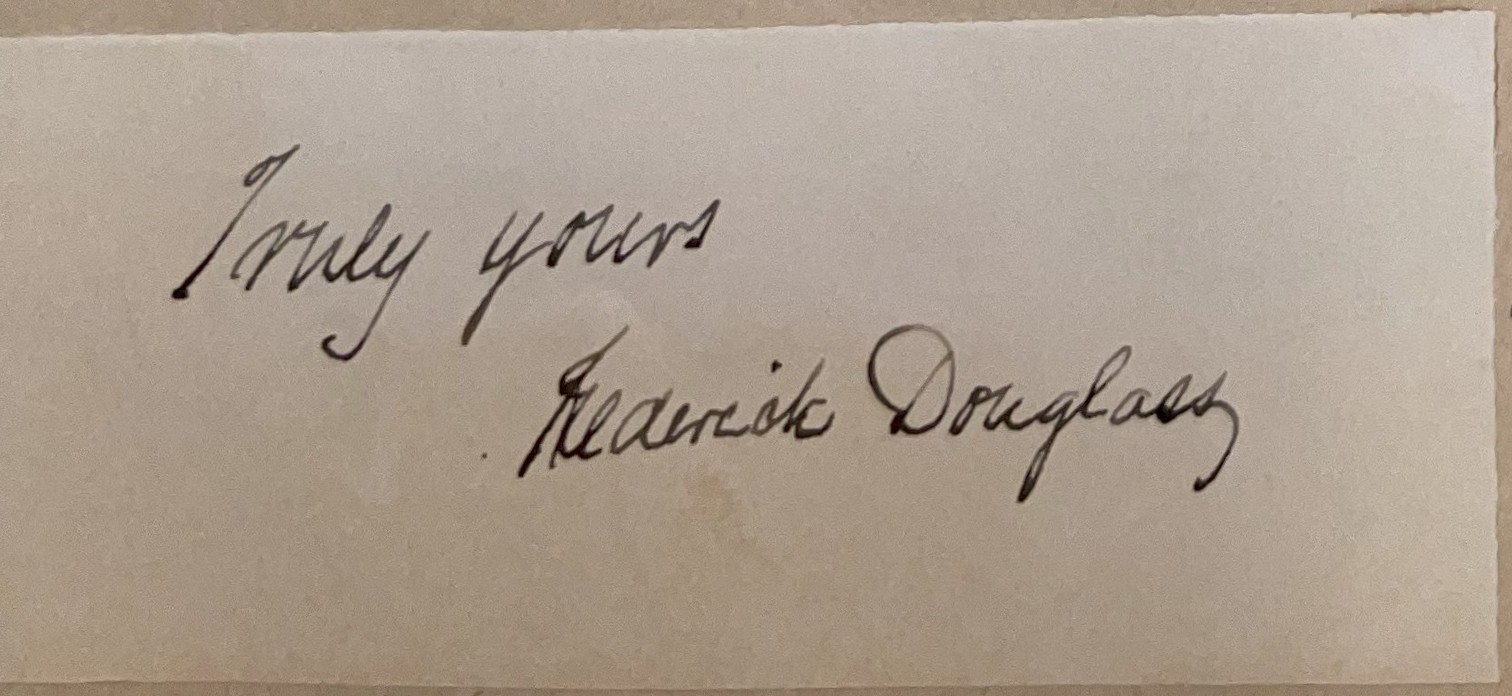 Truly yours
Frederick Douglass